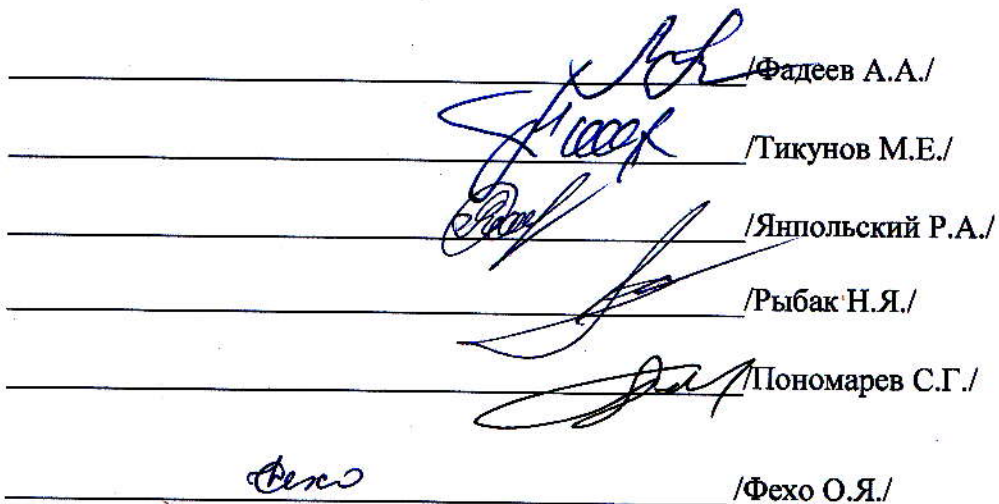 /Фадеев А.А./
/Тикунов М.Е./
/Янпольский Р.А./
/Рыбак Н.Я./
/Пономарев С.Г./
Фехо /Фехо О.Я./